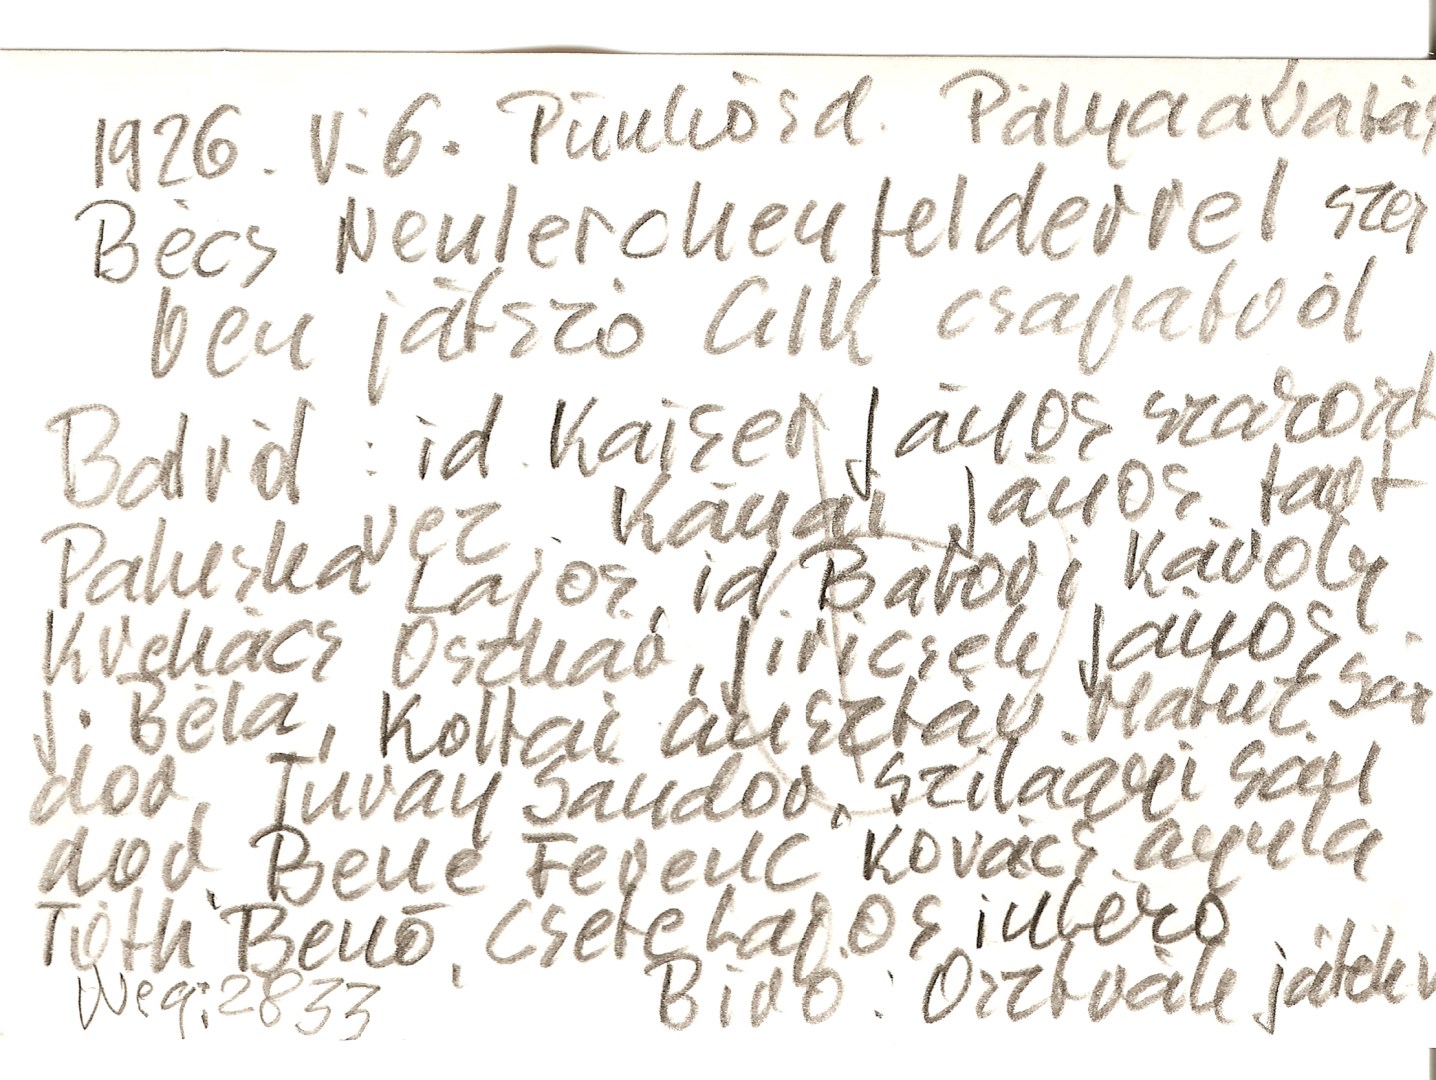 1926. V. 6. Pünkösd. Pályaavatás
Bécs Neulerchenfelderrel szem
ben játszó CLK csapatról
Balról: id. Kaiser János szakoszt
vez. Kánai János tart
Paluska Lajos, id Bátori Károly
Kvchács Oszkár, Jiricsek János,
J. Béla, Koltai Gusztáv. Matuz Sán
dor, Turay Sandor, Szilagyi Sán
dor, Bene Ferenc Kovács Gyula
Tóth Benő, Csete Lajos intéző
Neg: 2833 Biró: Osztrák játékv